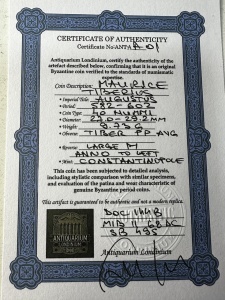 CERTIFICATE OF AUTHENTICITY
Certificate No-ANTA R01
Antiquarium Londinium, certify the authenticity of the
artefact described below, confirming it is an original
Byzantine coin verified to the standards of numismatic
expertise.
Coin Description: MAURICE
TIBERIUS
Imperial Title: AUGUSTUS
Period: 582-602
Coin Type: 40 NUMMI
Diameter:
Weight:
Obverse: TIBER PP AVG
Reverse: LARGE M
ANNO TO LEFT
Mint: CONSTANTINOPLE
This coin has been subjected to detailed analysis,
including stylistic comparison with similar specimens,
and evaluation of the patina and wear characteristic of
genuine Byzantine period coins.
This artifact is guaranteed to be authentic and not a modern replica.
ANTIQUARIUM
LONDINIUM
DOC
MIB
SB 495
Antiquarium Londinium